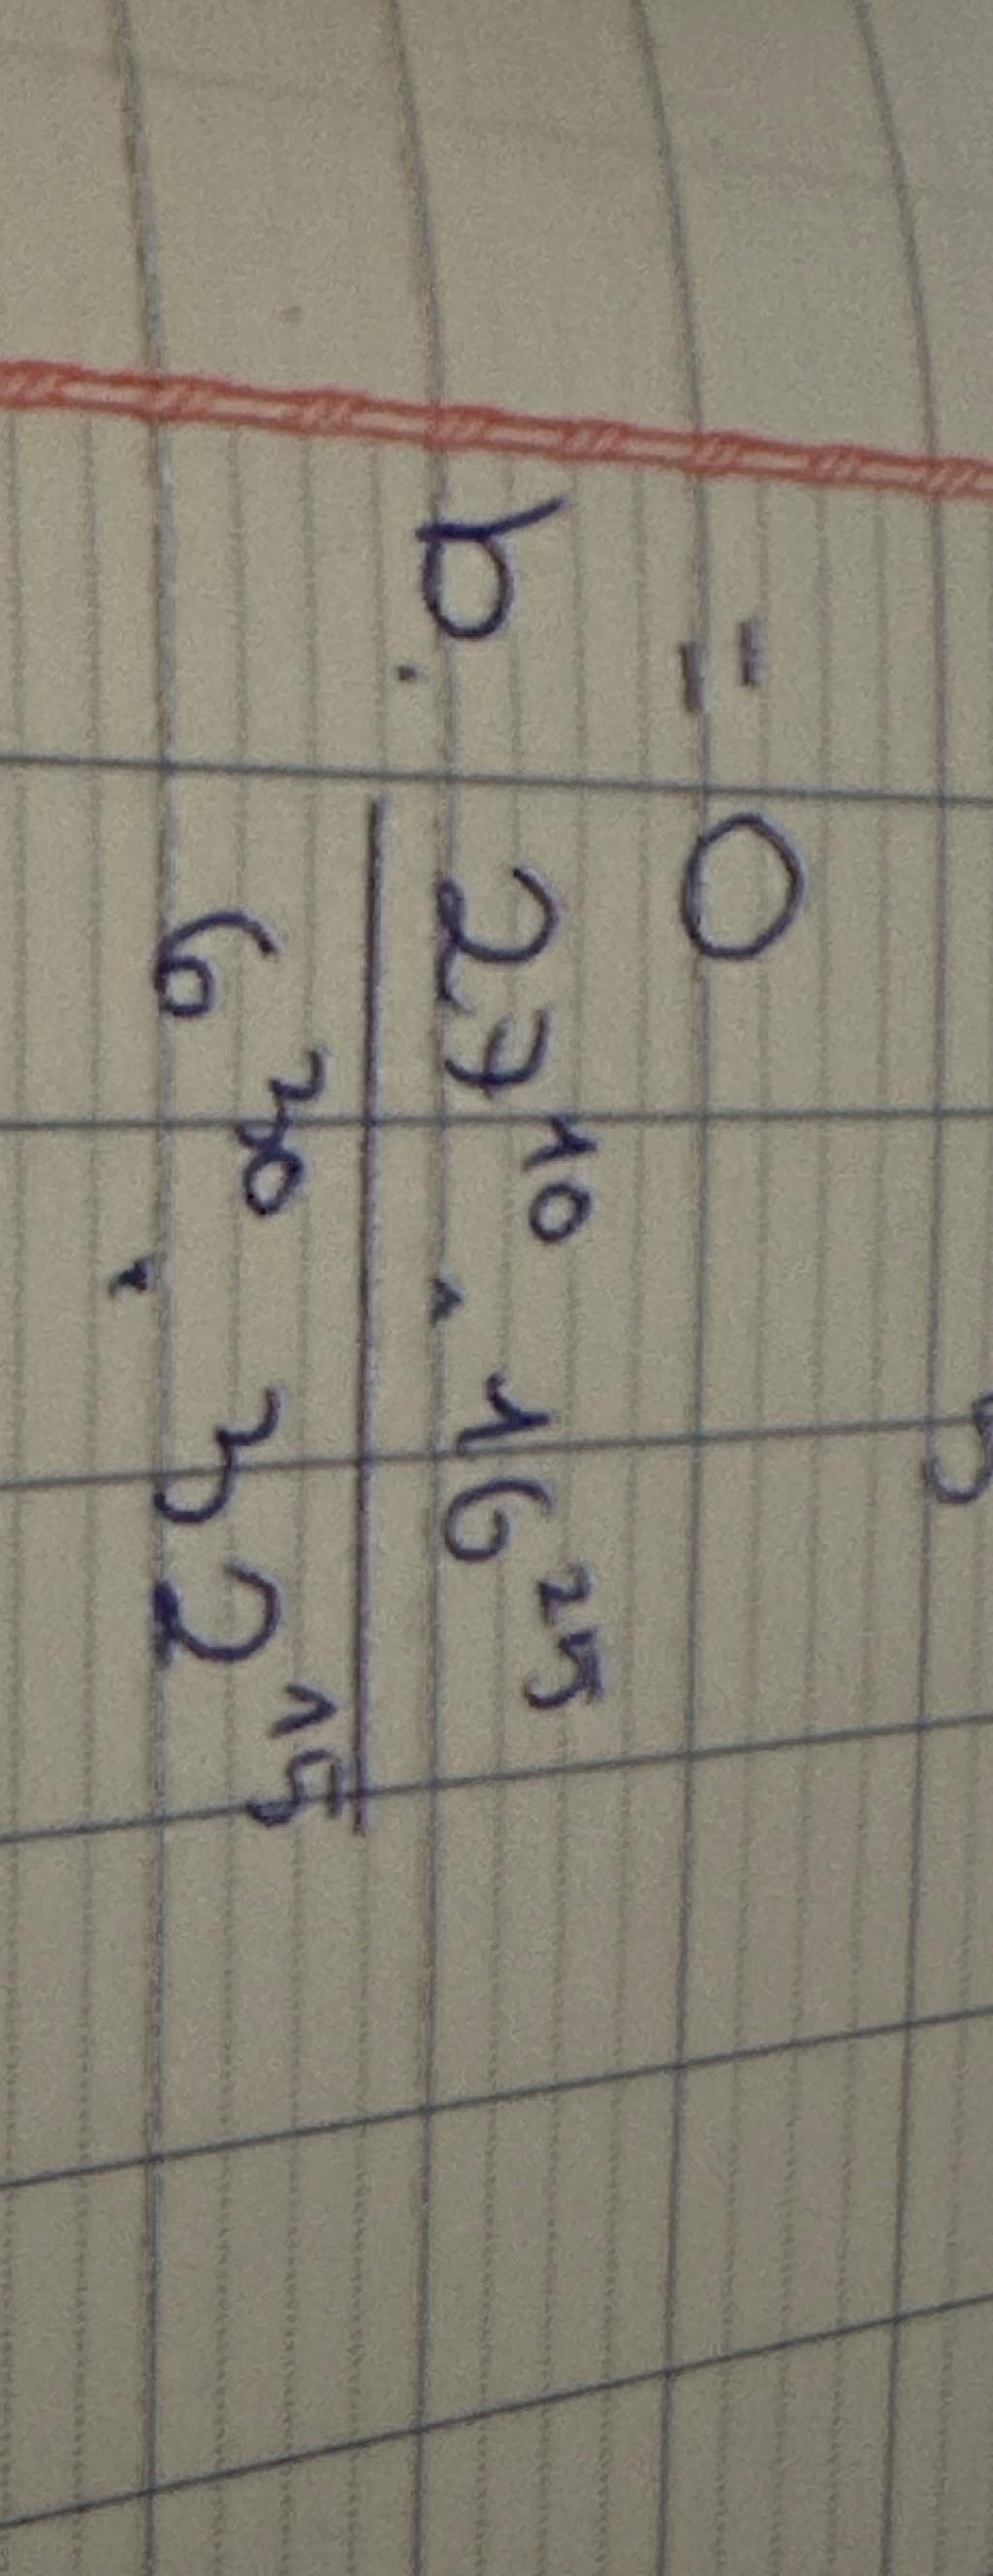 = 0
b. 27¹⁰ . 16²⁵
6³⁰ . 32¹⁵